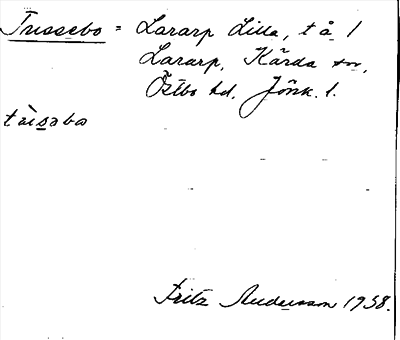 Trissebo = Lararp Lilla, t å 1
Lararp, Kärda sn,
Östbo hd, Jönk. l.
tr̀isəbo
Fritz Andersson 1938.